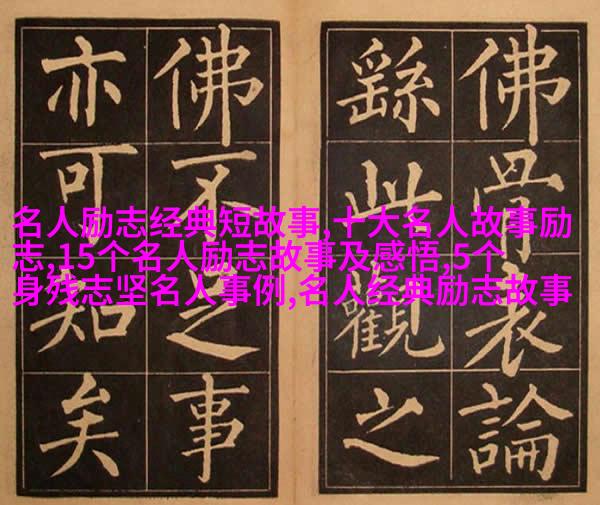 佛骨表論
繇此觀之
佛不足事
亦可知矣
名人励志经典短故事,十大名人故事励
志,15个名人励志故事及感悟,5个
身残志坚名人事例,名人经典励志故事